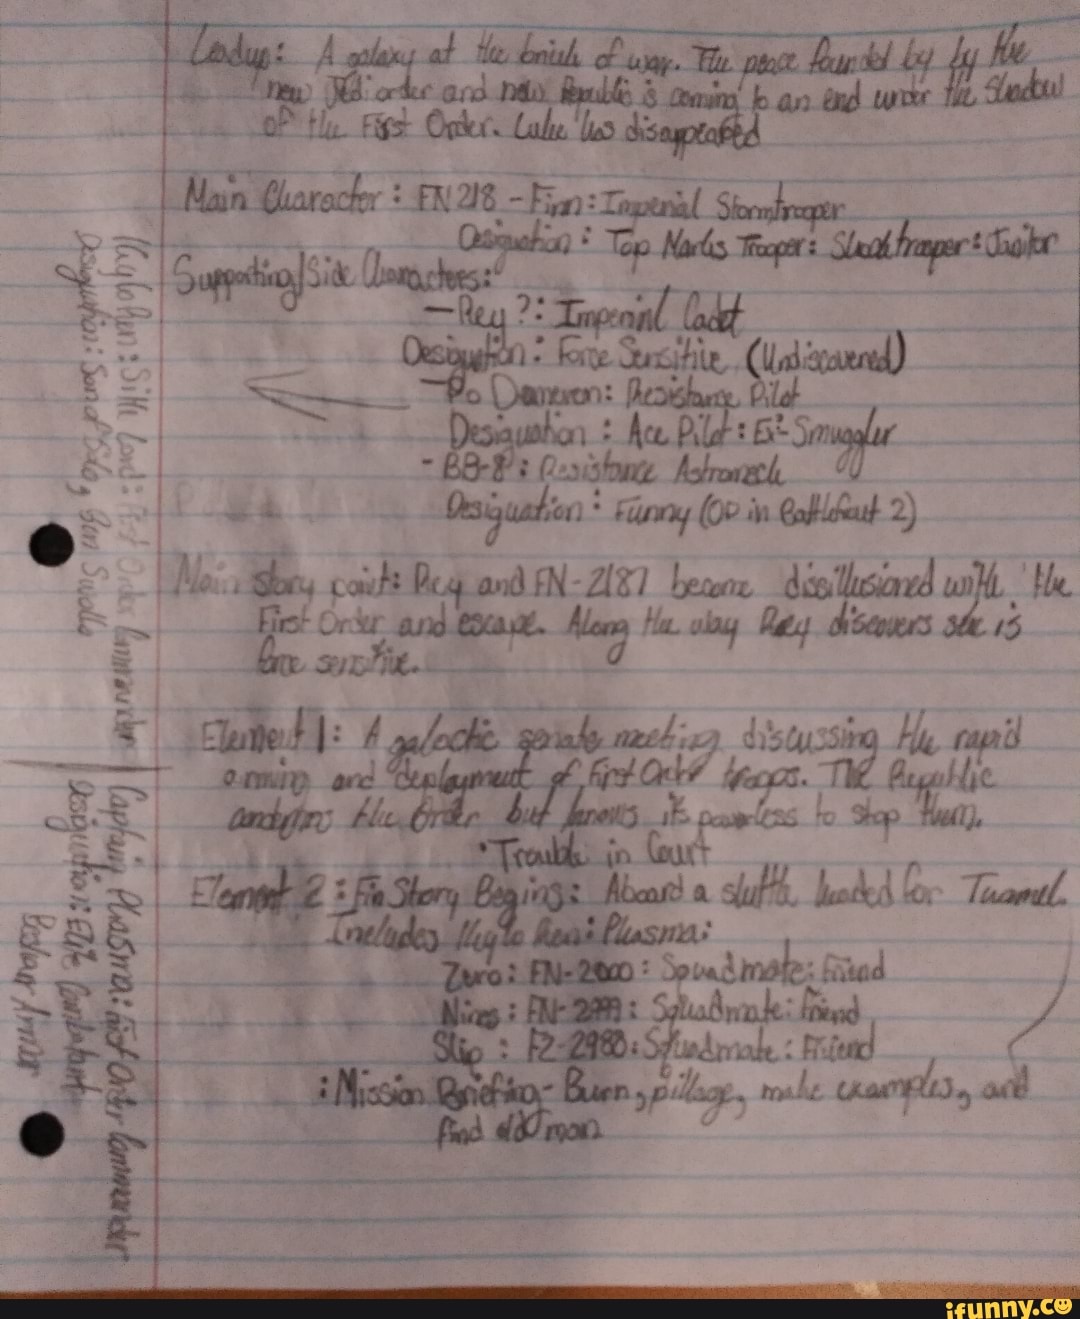 Leadup: A galaxy at the brink of war. The peace founded by by the
new Jedi order and new Republic is coming to an end under the Shadow
of the First Order. Luke has disappeared
Main Character: FN 218 - Finn: Imperial Stormtrooper
Designation: Top Marks Trooper: Shocktrooper: Janitor
Supporting/Side Characters:
- Rey ?: Imperial Cadet
Designation: Force Sensitive (Undiscovered)
- Po Dameron: Resistance Pilot
Designation: Ace Pilot: Ex-Smuggler
- BB-8: Resistance Astromech
Designation: Funny (OP in Battlefront 2)
Main story point: Rey and FN-2187 become dissillusioned with the
First Order and escape. Along the way Rey discovers she is
force sensitive.
Element 1: A galactic senate meeting discussing the rapid
arming and deployment of First Order troops. The Republic
condemns the Order but knows its powerless to stop them.
• Trouble in Court
Element 2: Fin Story Begins: Aboard a shuttle headed for Tuanul.
Includes Kylo Ren: Plasma:
Zero: FN-2000: Squadmate: Friend
Nines: FN-2999: Squadmate: Friend
Slip: FZ-2980: Squadmate: Friend
: Mission Briefing - Burn, pillage, make examples, and
find old man
Kylo Ren: Sith Lord: First Order Commander
Designation: Son of Solo, Ben Swolo
Captain Plasma: First Order Commander
Designation: Elite Combatant
Beskar Armor
ifunny.co